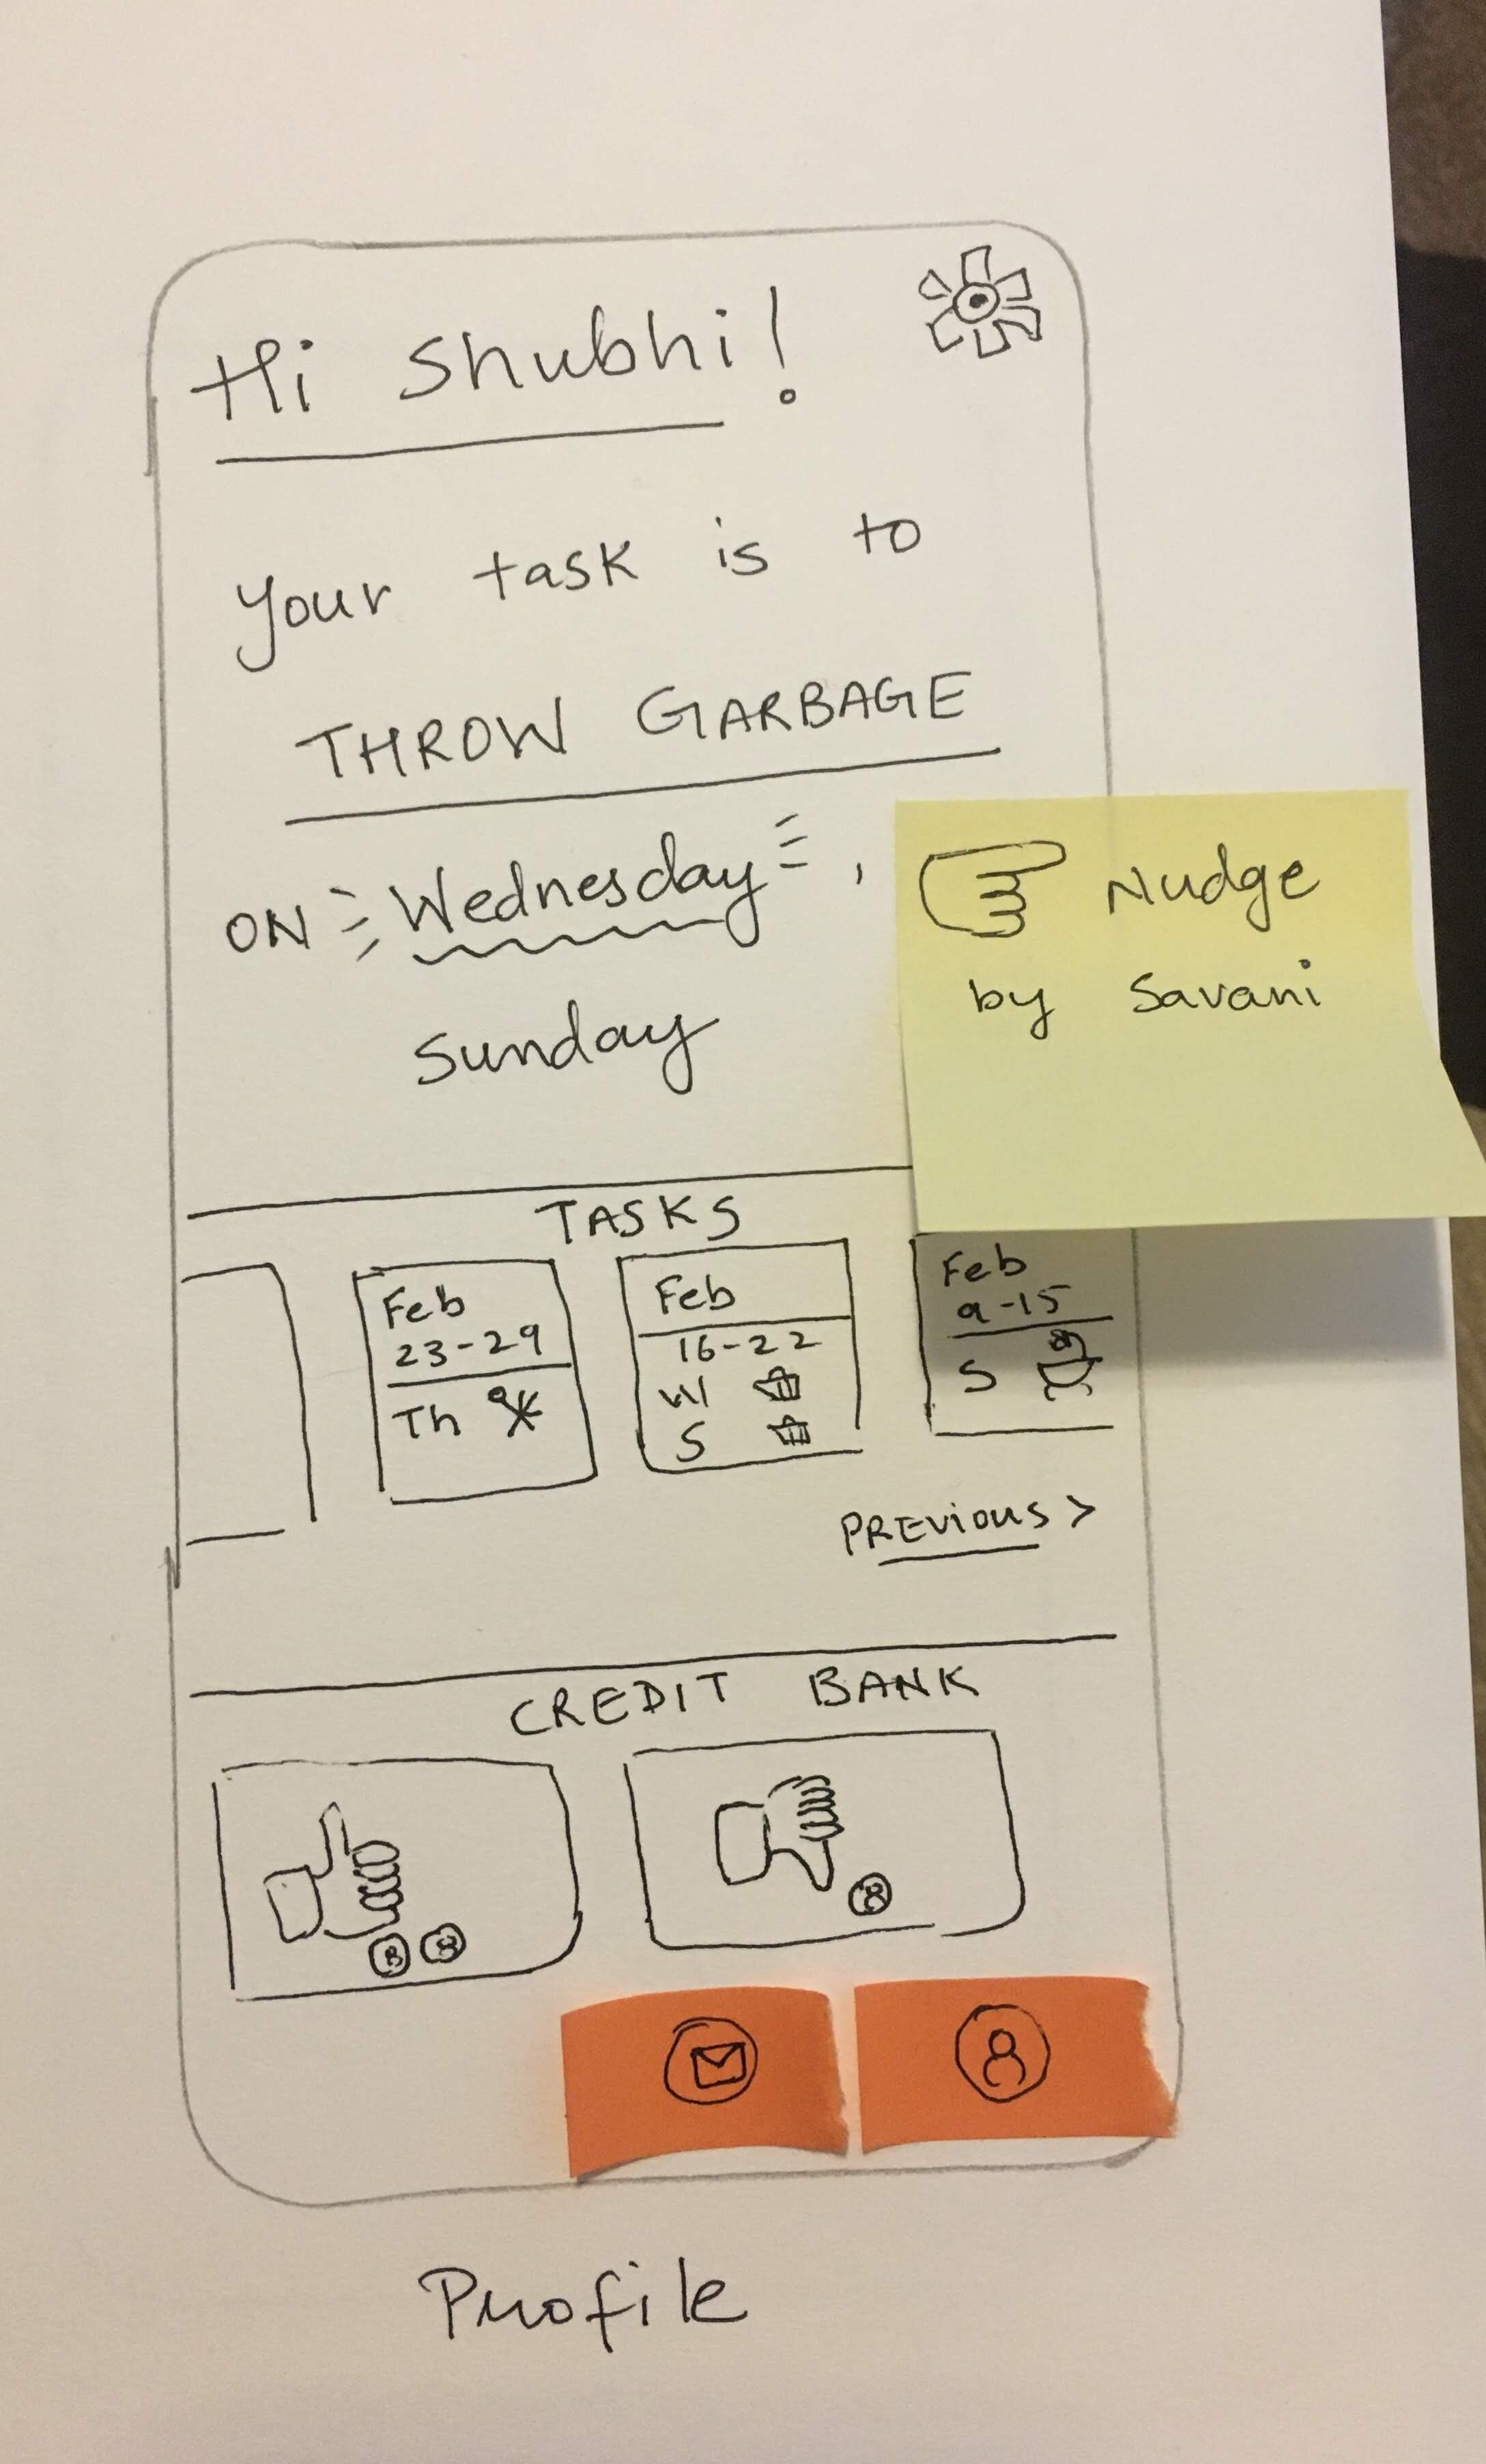 Hi Shubhi!
Your task is to
THROW GARBAGE
ON Wednesday,
Sunday
Nudge
by Savani
TASKS
Feb
23-29
Th
Feb
16-22
W
S
Feb
9-15
S
PREVIOUS >
CREDIT BANK
Profile